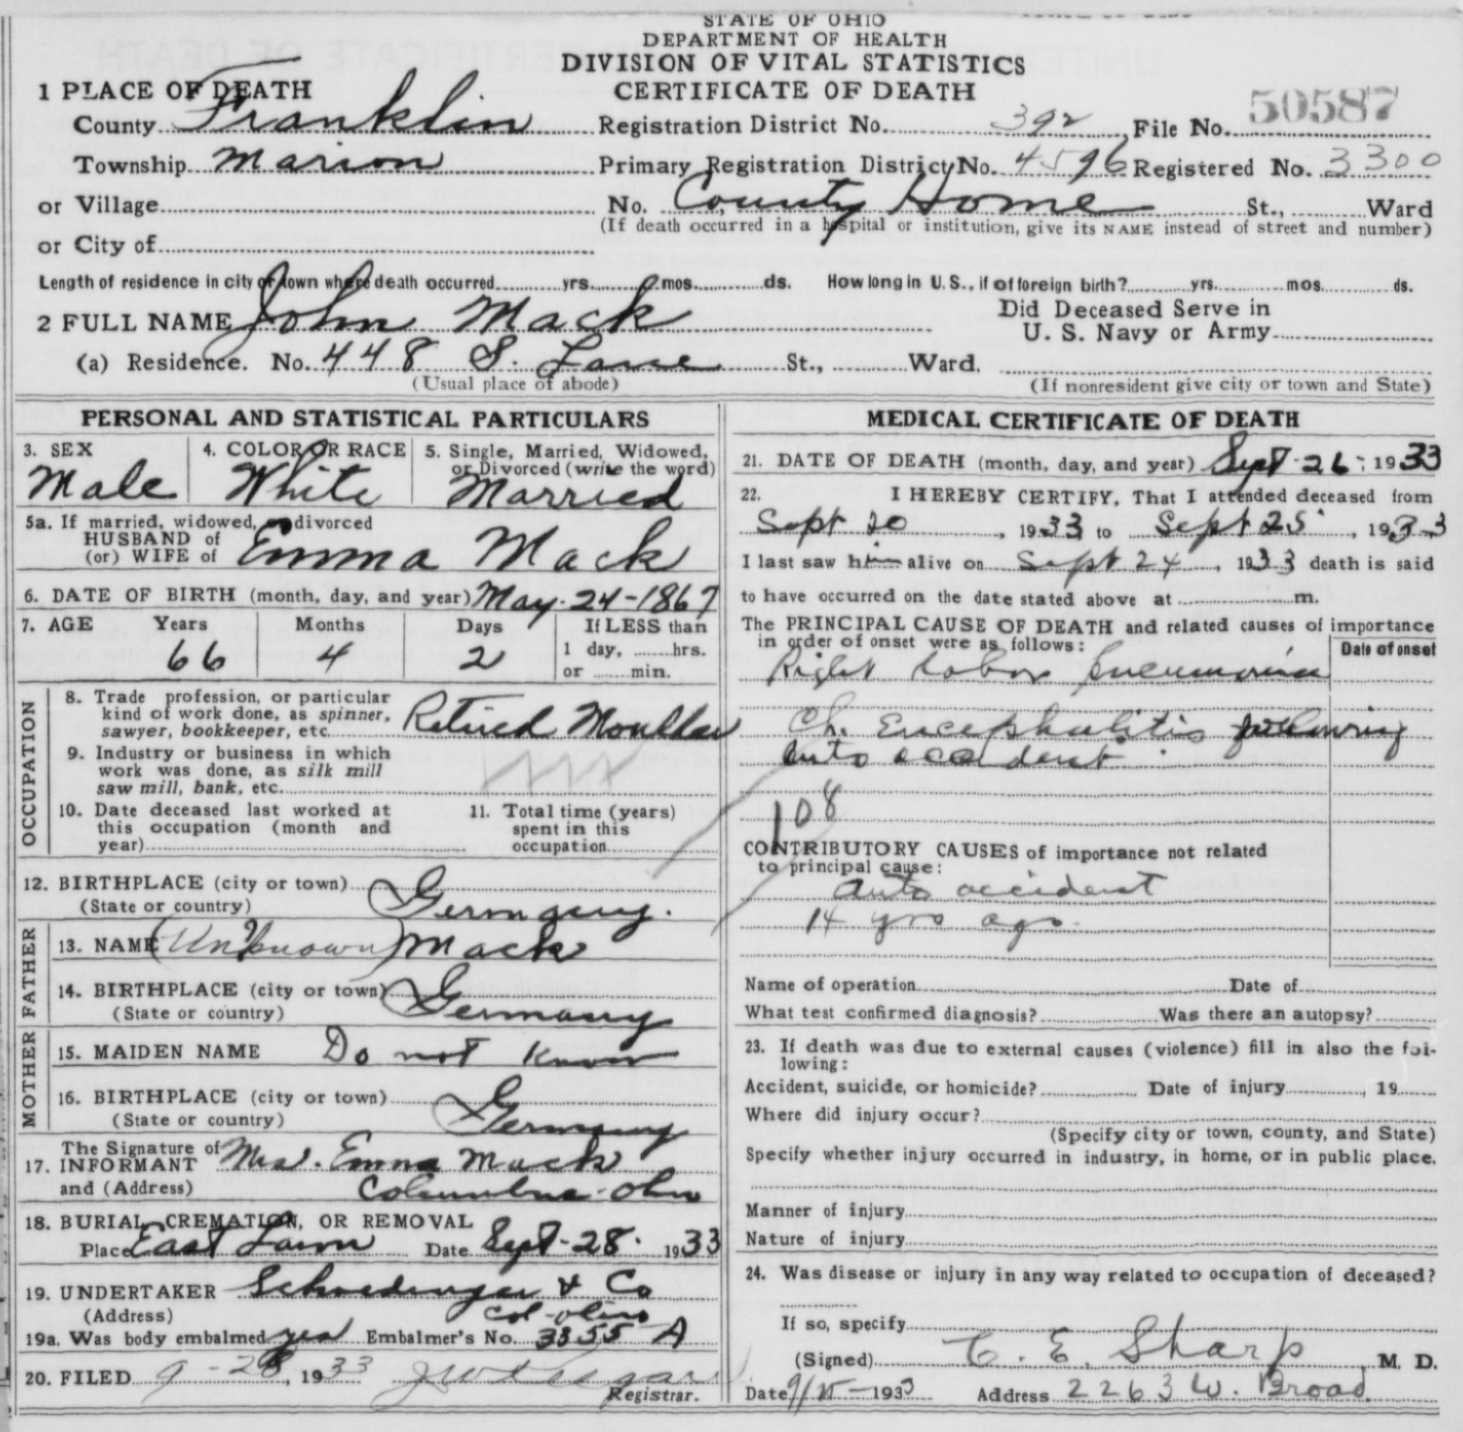 STATE OF OHIO
DEPARTMENT OF HEALTH
DIVISION OF VITAL STATISTICS
CERTIFICATE OF DEATH
50587
1 PLACE OF DEATH
County Franklin Registration District No. 392 File No.
Township Marion Primary Registration District No. 4596 Registered No. 3300
or Village No. County Home St., Ward
(If death occurred in a hospital or institution, give its NAME instead of street and number)
or City of
Length of residence in city or town where death occurred yrs. mos. ds. How long in U. S., if of foreign birth? yrs. mos. ds.
2 FULL NAME John Mack Did Deceased Serve in
U. S. Navy or Army
(a) Residence. No. 448 S. Lane St., Ward.
(Usual place of abode) (If nonresident give city or town and State)
PERSONAL AND STATISTICAL PARTICULARS
3. SEX 4. COLOR OR RACE 5. Single, Married, Widowed,
or Divorced (write the word)
Male White Married
5a. If married, widowed, or divorced
HUSBAND of
(or) WIFE of Emma Mack
6. DATE OF BIRTH (month, day, and year) May. 24-1867
7. AGE Years Months Days If LESS than
66 4 2 1 day, hrs.
or min.
OCCUPATION
8. Trade profession, or particular
kind of work done, as spinner,
sawyer, bookkeeper, etc. Retired Moulder
9. Industry or business in which
work was done, as silk mill
saw mill, bank, etc.
10. Date deceased last worked at
this occupation (month and
year)
11. Total time (years)
spent in this
occupation
12. BIRTHPLACE (city or town)
(State or country) Germany.
FATHER
13. NAME (Unknown) Mack
14. BIRTHPLACE (city or town)
(State or country) Germany
MOTHER
15. MAIDEN NAME Do not know
16. BIRTHPLACE (city or town)
(State or country) Germany
The Signature of
17. INFORMANT Mrs. Emma Mack
and (Address) Columbus-Ohio
18. BURIAL, CREMATION, OR REMOVAL
Place East Lawn Date Sept-28. 1933
19. UNDERTAKER Schoedinger & Co
(Address) Col-Ohio
19a. Was body embalmed yes Embalmer's No. 3355-A
20. FILED 9-28, 1933
Registrar.
MEDICAL CERTIFICATE OF DEATH
21. DATE OF DEATH (month, day, and year) Sept-26, 1933
22. I HEREBY CERTIFY, That I attended deceased from
Sept 20, 1933 to Sept 25, 1933
I last saw him alive on Sept 24, 1933 death is said
to have occurred on the date stated above at m.
The PRINCIPAL CAUSE OF DEATH and related causes of importance
in order of onset were as follows: Date of onset
Right Lobar Pneumonia
Ch. Encephalitis following
auto accident
108
CONTRIBUTORY CAUSES of importance not related
to principal cause:
auto accident
14 yrs ago.
Name of operation Date of
What test confirmed diagnosis? Was there an autopsy?
23. If death was due to external causes (violence) fill in also the fol-
lowing:
Accident, suicide, or homicide? Date of injury , 19
Where did injury occur?
(Specify city or town, county, and State)
Specify whether injury occurred in industry, in home, or in public place.
Manner of injury
Nature of injury
24. Was disease or injury in any way related to occupation of deceased?
If so, specify
(Signed) C. E. Sharp, M. D.
Date 1933 Address 2263 W. Broad.